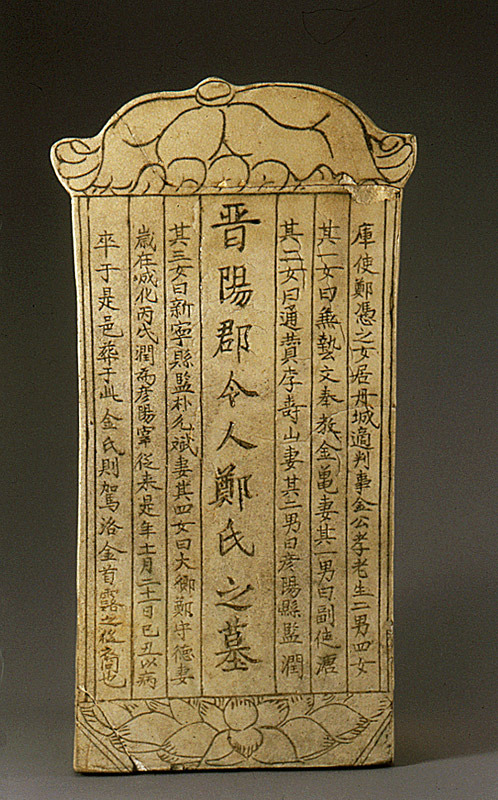 庫使鄭憑之女居丹城適判事金公孝老生二男四女
其一女曰兼藝文奉教金黽妻其一男曰副使潤
其二女曰通贊李壽山妻其二男曰彦陽縣監潤
晋陽郡令人鄭氏之墓
其三女曰新寧縣監朴允斌妻其四女曰大卿鄭守德妻
歲在成化丙戌潤爲彦陽宰從来是年十月二十一日己丑以病
卒于是邑葬于此金氏則駕洛金首露之後裔也